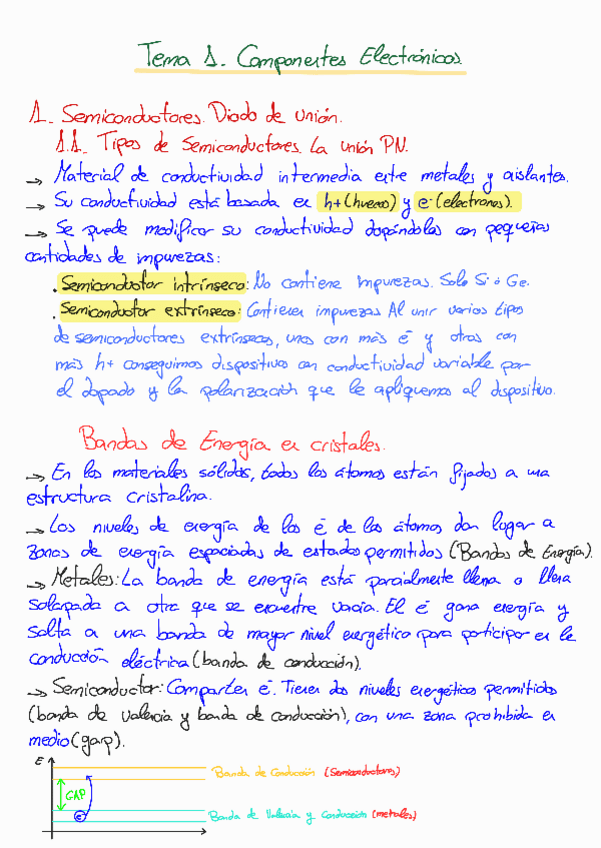 Tema 1. Componentes Electrónicos.
1. Semiconductores. Diodo de unión.
1.1. Tipos de Semiconductores. La unión PN.
→ Material de conductividad intermedia entre metales y aislantes.
→ Su conductividad está basada en h+(hueco) y e-(electrones).
→ Se puede modificar su conductividad dopándolos con pequeñas
cantidades de impurezas:
. Semiconductor intrínseco: No contiene impurezas. Solo Si o Ge.
. Semiconductor extrínseco: Contienen impurezas Al unir varios tipos
de semiconductores extrínsecos, unos con más e- y otros con
más h+ conseguimos dispositivos con conductividad variable por
el dopado y la polarización que le apliquemos al dispositivo.
Bandas de Energía en cristales.
→ En los materiales sólidos, todos los átomos están fijados a una
estructura cristalina.
→ Los niveles de energía de los e- de los átomos dan lugar a
zonas de energía espaciadas de estados permitidos (Bandas de Energía).
→ Metales: La banda de energía está parcialmente llena o llena
solapada a otra que se encuentre vacía. El e- gana energía y
salta a una banda de mayor nivel energético para participar en la
conducción eléctrica (banda de conducción).
→ Semiconductor: Comparten e-. Tienen dos niveles energéticos permitidos
(banda de valencia y banda de conducción), con una zona prohibida en
medio (gap).
E
Banda de Conducción (Semiconductores)
GAP
e-
Banda de Valencia y Conducción (metales)